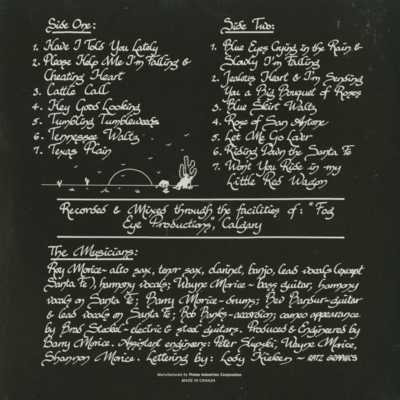 Side One:
1. Have I Told You Lately
2. Please Help Me I'm Falling &
Cheating Heart
3. Cattle Call
4. Hey Good Looking
5. Tumbling Tumbleweeds
6. Tennessee Waltz
7. Texas Plain
Side Two:
1. Blue Eyes Crying in the Rain &
Slowly I'm Falling
2. Jealous Heart & I'm Sending
You a Big Bouquet of Roses
3. Blue Skirt Waltz
4. Rose of San Antone
5. Let Me Go Lover
6. Riding Down the Santa Fe
7. Won't You Ride in my
Little Red Wagon
Recorded & Mixed through the facilities of: "Fog
Eye Productions", Calgary
The Musicians:
Roy Morice - alto sax, tenor sax, clarinet, banjo, lead vocals (except
Santa Fe), harmony vocals; Wayne Morice - bass guitar, harmony
vocals on Santa Fe; Barry Morice - drums; Bev Bonsur - guitar
& lead vocals on Santa Fe; Bob Banks - accordion; cameo appearance
by Brad Steckel - electric & steel guitars. Produced & Engineered by
Barry Morice. Assistant engineers: Peter Slupski, Wayne Morice,
Shannon Morice. Lettering by: Lody
Manufactured by Praise Industries Corporation
MADE IN CANADA